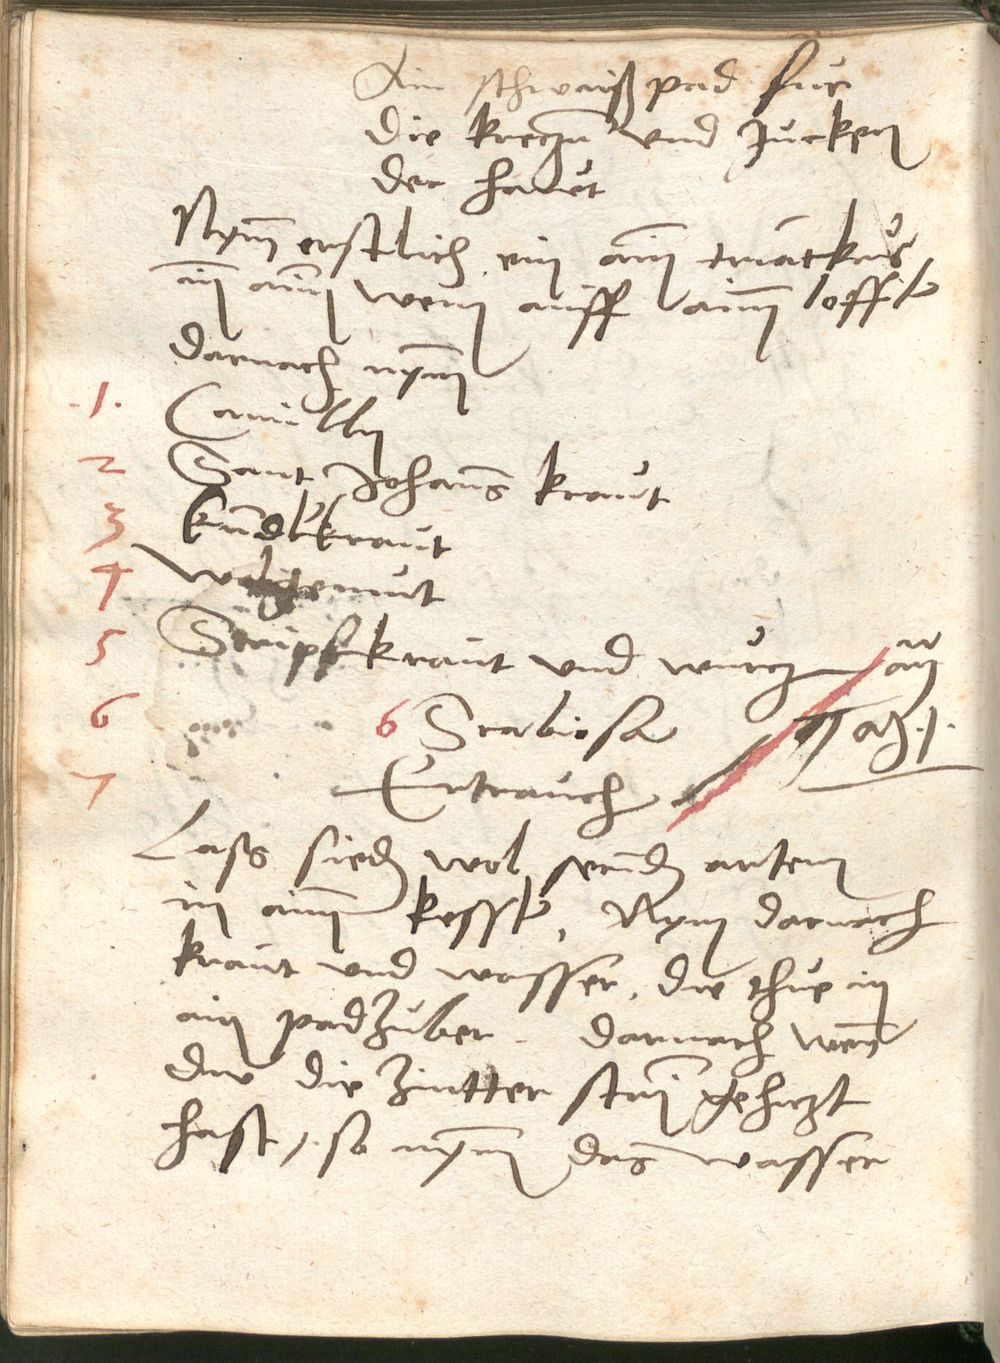 Ain schwaiß pad fur
die kreczn̄ und Jucken
der haut
Nym̄ erstlich ein ain̄ triackus
in̄ ain̄ wein auff ain̄ loffl
darnach nym̄
.1. Camilln
2 Sant Johans̄ kraut
3 kundlkraut
4 wolgemut
5 Scripfkraut und wurcz an̄
6 6 Scabiosa M aȝ .j.
7 Ertrauch
Lass sieden wol
in ain̄ kessl, Nym darnach
kraut und wasser, die thue in
ain padzuber. darnach wen̄
du die Zintter stain̄ gehiczt
hast, so nym̄ das wasser